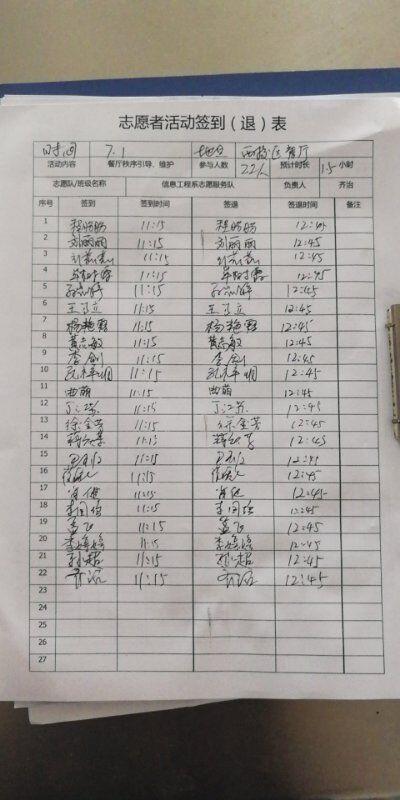 志愿者活动签到（退）表
时间 7.1 地点 西校区餐厅
活动内容 餐厅秩序引导、维护 参与人数 22人 预计时长 1.5 小时
志愿队/班级名称 信息工程系志愿服务队 负责人 齐治
序号 签到 签到时间 签退 签退时间 备注
1 程盼盼 11:15 程盼盼 12:45
2 刘丽丽 11:15 刘丽丽 12:45
3 11:15 12:45
4 11:15 12:45
5 11:15 12:45
6 王了立 11:15 王了立 12:45
7 杨艳霞 11:15 杨艳霞 12:45
8 黄志敏 11:15 黄志敏 12:45
9 李剑 11:15 李剑 12:45
10 11:15 12:45
11 曲萌 11:15 曲萌 12:45
12 丁江苏 11:15 丁江苏 12:45
13 徐金芳 11:15 徐金芳 12:45
14 11:15 12:45
15 11:15 12:45
16 11:15 12:45
17 肖健 11:15 肖健 12:45
18 李国强 11:15 李国强 12:45
19 孟飞 11:15 孟飞 12:45
20 李媛媛 11:15 李媛媛 12:45
21 孙超 11:15 孙超 12:45
22 11:15 12:45
23
24
25
26
27